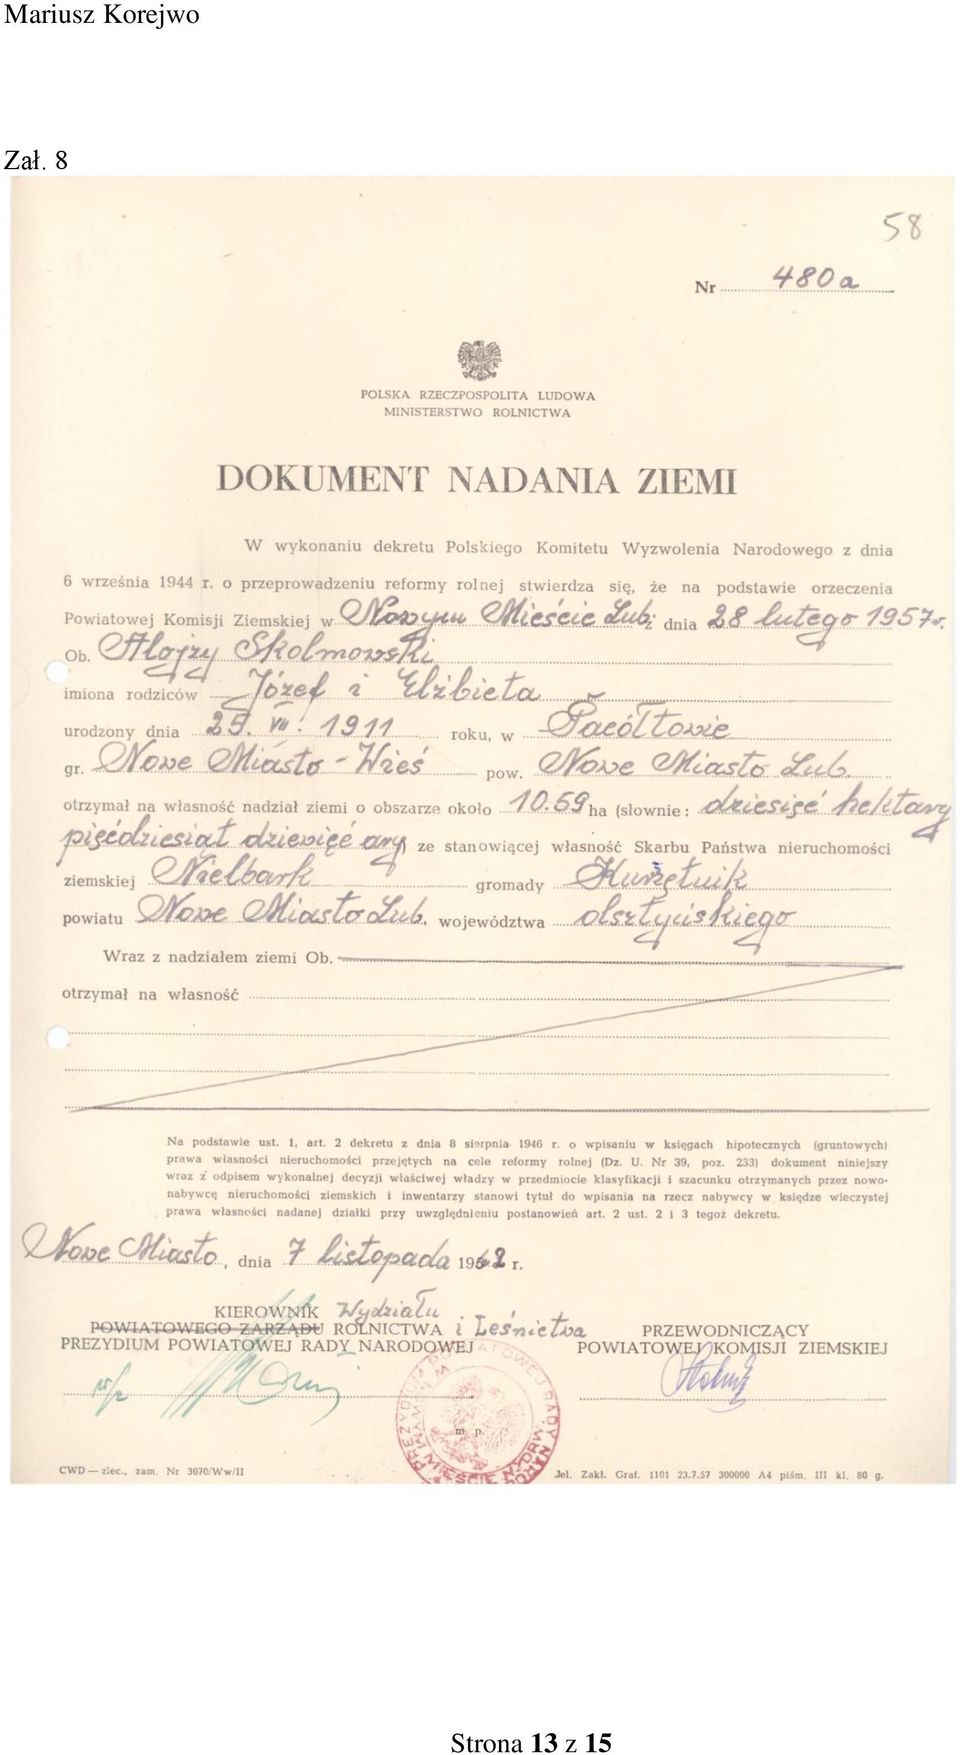 Mariusz Korejwo
Zał. 8
58
Nr 480a
POLSKA RZECZPOSPOLITA LUDOWA
MINISTERSTWO ROLNICTWA
DOKUMENT NADANIA ZIEMI
W wykonaniu dekretu Polskiego Komitetu Wyzwolenia Narodowego z dnia
6 września 1944 r. o przeprowadzeniu reformy rolnej stwierdza się, że na podstawie orzeczenia
Powiatowej Komisji Ziemskiej w Nowym Mieście Lub. z dnia 28 lutego 1957 r.
Ob. Alojzy Skolmowski
imiona rodziców Józef i Elżbieta
urodzony dnia 25. VII. 1911 roku, w Pacółtowie
gr. Nowe Miasto - Wieś pow. Nowe Miasto Lub.
otrzymał na własność nadział ziemi o obszarze około 10.59 ha (słownie: dziesięć hektary
pięćdziesiąt dziewięć ary) ze stanowiącej własność Skarbu Państwa nieruchomości
ziemskiej Nielbark gromady Kurzętnik
powiatu Nowe Miasto Lub. województwa olsztyńskiego
Wraz z nadziałem ziemi Ob.
otrzymał na własność
Na podstawie ust. 1, art. 2 dekretu z dnia 8 sierpnia 1946 r. o wpisaniu w księgach hipotecznych (gruntowych)
prawa własności nieruchomości przejętych na cele reformy rolnej (Dz. U. Nr 39, poz. 233) dokument niniejszy
wraz z odpisem wykonalnej decyzji właściwej władzy w przedmiocie klasyfikacji i szacunku otrzymanych przez nowo-
nabywcę nieruchomości ziemskich i inwentarzy stanowi tytuł do wpisania na rzecz nabywcy w księdze wieczystej
prawa własności nadanej działki przy uwzględnieniu postanowień art. 2 ust. 2 i 3 tegoż dekretu.
Nowe Miasto, dnia 7 listopada 1962 r.
KIEROWNIK Wydziału
POWIATOWEGO ZARZĄDU ROLNICTWA i Leśnictwa
PREZYDIUM POWIATOWEJ RADY NARODOWEJ
PRZEWODNICZĄCY
POWIATOWEJ KOMISJI ZIEMSKIEJ
m. p.
CWD — zlec., zam. Nr 3070/Ww/II
Jel. Zakł. Graf. 1101 23.7.57 300000 A4 piśm. III kl. 80 g.
Strona 13 z 15